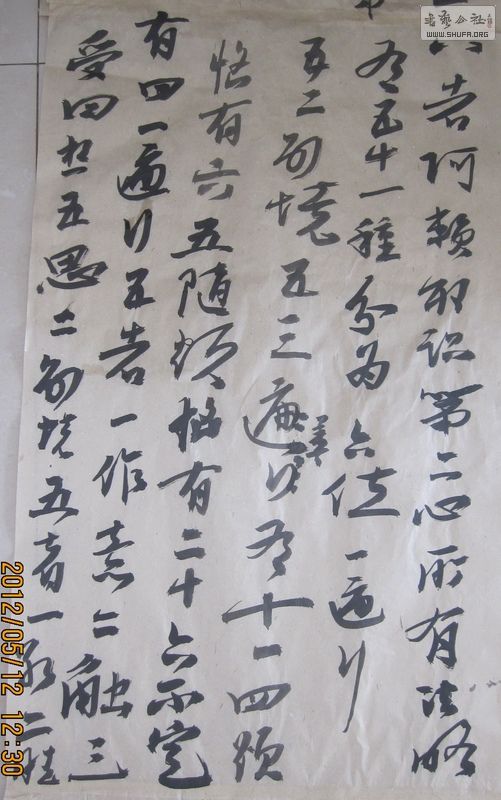 八者阿赖耶识第二心所有法略
有五十一种分为六位一遍行
五二别境五三遍行善有十一四烦
恼有六五随烦恼有二十六不定
有四一遍行五者一作意二触三
受四想五思二别境五者一欲二胜
书艺公社
WWW.SHUFA.ORG
2012/05/12 12:30